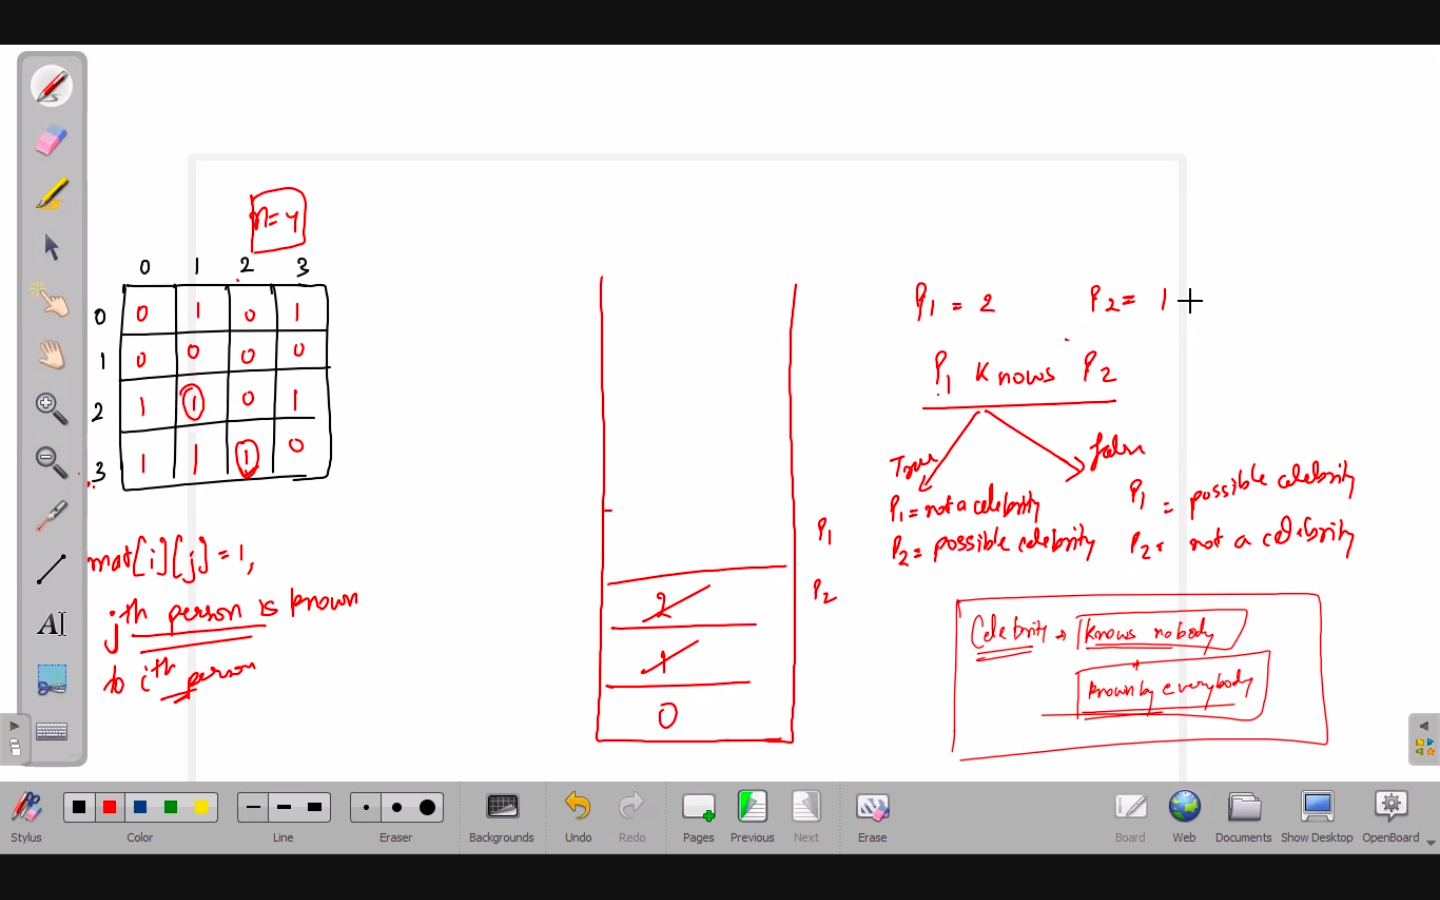 n=4
0 1 2 3
0 0 1 0 1
1 0 0 0 0
2 1 1 0 1
3 1 1 1 0
mat[i][j]=1,
jth person is known
to ith person
P1
P2
2
1
0
P1 = 2 P2 = 1
P1 knows P2
True
false
P1 = not a celebrity
P2 = possible celebrity
P1 = possible celebrity
P2 = not a celebrity
Celebrity → knows nobody
+
known by everybody
Stylus
Color
Line
Eraser
Backgrounds
Undo
Redo
Pages
Previous
Next
Erase
Board
Web
Documents
Show Desktop
OpenBoard